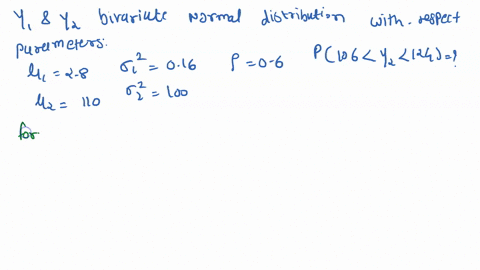 Y₁ & Y₂ bivariate normal distribution with respect
parameters:
μ₁ = 2.8 σ₁² = 0.16 ρ = 0.6 P(106 < Y₂ < 124) = ?
μ₂ = 110 σ₂² = 100
for